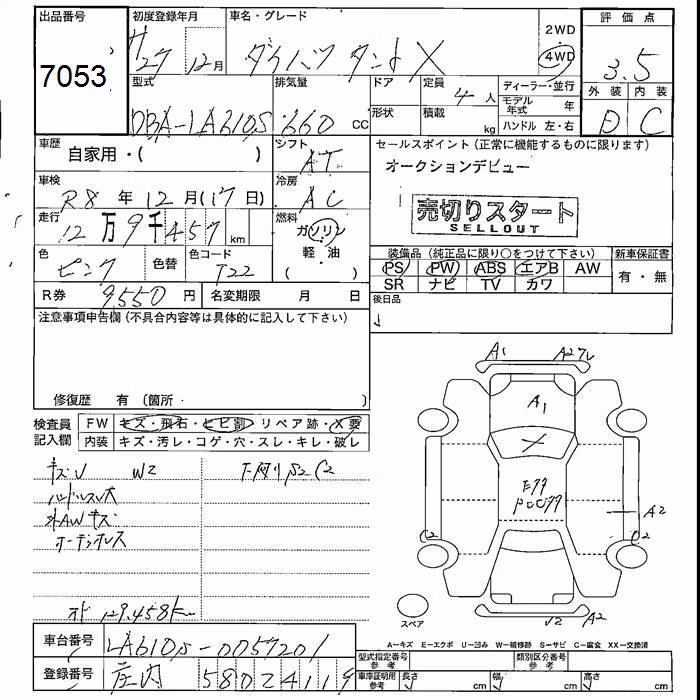 出品番号
7053
初度登録年月
H27年 12月
車名・グレード
ダイハツ タント X
2WD
4WD
評価点
3.5
外装 内装
D C
型式
DBA-LA610S
排気量
660 cc
ドア
形状
定員
4人
積載
kg
ディーラー・並行
モデル年式 年
ハンドル 左・右
車歴
自家用・( )
シフト
AT
セールスポイント(正常に機能するものに限ります)
オークションデビュー
売切りスタート
SELLOUT
車検
R8 年 12月(17日)
冷房
AC
走行
12万9千457 km
燃料
ガソリン
軽・油
( )
色
ピンク
色替
色コード
T22
装備品(純正品に限り○をつけて下さい)
新車保証書
PS PW ABS エアB AW
SR ナビ TV カワ
有・無
R券
9,550円
名変期限 月 日
後日品
注意事項申告欄(不具合内容等は具体的に記入して下さい)
修復歴 有(箇所 )
検査員記入欄
FW キズ・飛石・ヒビ割 リペア跡・X要
内装 キズ・汚レ・コゲ・穴・スレ・キレ・破レ
キズU W2
下廻り S2 C2
ハンドルスレ大
外AWキズ
オーディオレス
オド 129,458km
A1
A1
A2
C2
C2
A2
スペア
A-キズ E-エクボ U-凹み W-補修跡 S-サビ C-腐食 XX-交換済
車台番号
LA610S-0057201
登録番号
庄内 580 2 4119
型式指定番号 参考
類別区分番号 参考
車庫証明用 参考
長さ cm
幅 cm
高さ cm